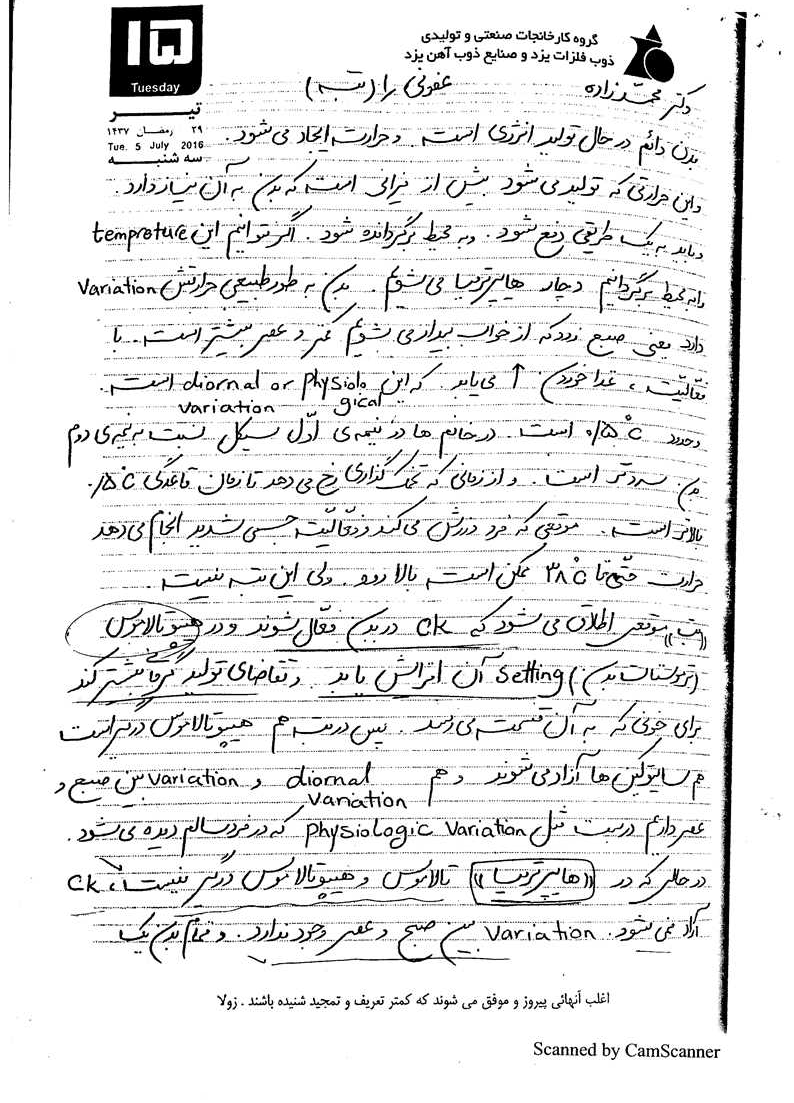 گروه کارخانجات صنعتی و تولیدی
ذوب فلزات یزد و صنایع ذوب آهن یزد
۱۵
Tuesday
تیر
۲۹ رمضان ۱۴۳۷
Tue. 5 July 2016
سه شنبه
دکتر محمدزاده عفونی را (تب)
بدن دائم در حال تولید انرژی است و حرارت ایجاد می شود.
و این حرارتی که تولید می شود بیش از میزانی است که بدن به آن نیاز دارد.
و باید به یک طریقی دفع شود. و به محیط برگردانده شود. اگر نتوانیم این temprature
را به محیط برگردانیم دچار هایپرترمیا می شویم. بدن به طور طبیعی حرارتش Variation
دارد یعنی صبح زود که از خواب بیدار می شویم کمتر و عصر بیشتر است. با
فعالیت، غذا خوردن ↑ می یابد. که این diornal or physiological
variation است.
و حدود ۰/۵°C است. در خانم ها در نیمه ی اول سیکل نسبت به نیمه ی دوم
بدن سردتر است. و از زمانی که تخمک گذاری رخ می دهد تا زمان قاعدگی ۰/۵°C
بالاتر است. موقعی که فرد ورزش می کند و فعالیت جسمی شدید انجام می دهد
حرارت حتی تا ۳۸°C ممکن است بالا رود. ولی این تب نیست.
«تب» موقعی اطلاق می شود که CK در بدن فعال شوند و در هیپوتالاموس
(ترموستات بدن) setting آن افزایش یابد و تقاضای تولید گرمای بیشتر کند
برای خونی که به آن قسمت می رسد. پس در تب هم هیپوتالاموس درگیر است
هم سایتوکین ها آزاد می شوند و هم diornal variation و variation بین صبح و
عصر داریم درست مثل physiologic variation که در فرد سالم دیده می شود.
در حالی که در «هایپرترمیا» تالاموس و هیپوتالاموس درگیر نیست، CK
آزاد نمی شود. variation بین صبح و عصر وجود ندارد. و تمام بدن یک
اغلب آنهائی پیروز و موفق می شوند که کمتر تعریف و تمجید شنیده باشند . زولا
Scanned by CamScanner